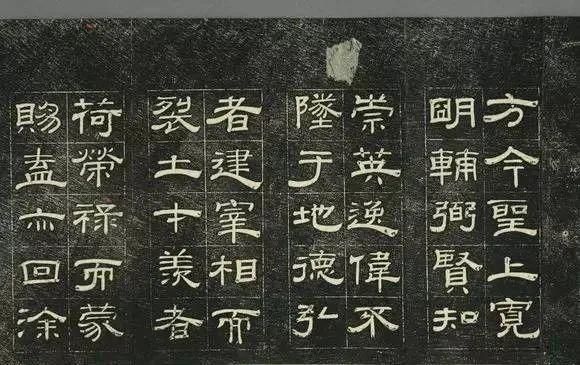 方今聖上寬
明輔弼賢知
崇英逸偉不
墜于地德弘
者建宰相而
裂土才羨者
荷榮祿而蒙
賜盍亦回涂